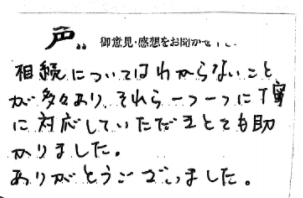 声 御意見・感想をお聞かせ
相続についてはわからないこと
が多々あり、それら一つ一つに丁寧
に対応していただきとても助
かりました。
ありがとうございました。